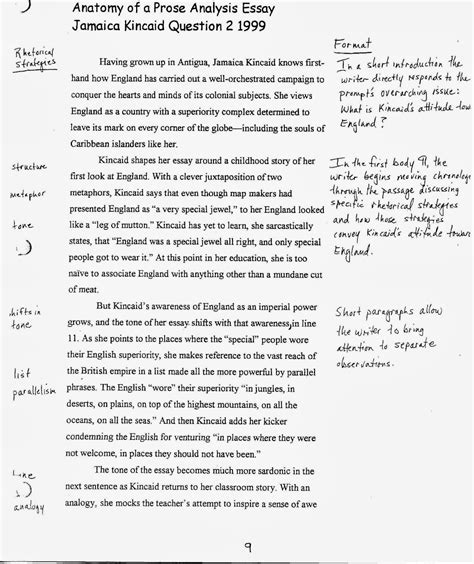 Anatomy of a Prose Analysis Essay
Jamaica Kincaid Question 2 1999
Rhetorical
Strategies
Having grown up in Antigua, Jamaica Kincaid knows first-
hand how England has carried out a well-orchestrated campaign to
conquer the hearts and minds of its colonial subjects. She views
England as a country with a superiority complex determined to
leave its mark on every corner of the globe—including the souls of
Caribbean islanders like her.
Format
In a short introduction the
writer directly responds to the
prompt's overarching issue:
What is Kincaid's attitude tow
England?
structure
metaphor
tone
Kincaid shapes her essay around a childhood story of her
first look at England. With a clever juxtaposition of two
metaphors, Kincaid says that even though map makers had
presented England as "a very special jewel," to her England looked
like a "leg of mutton." Kincaid has yet to learn, she sarcastically
states, that "England was a special jewel all right, and only special
people got to wear it." At this point in her education, she is too
naïve to associate England with anything other than a mundane cut
of meat.
In the first body ¶, the
writer begins moving chronologi
through the passage discussing
specific rhetorical strategies
and how those strategies
convey Kincaid's attitude toward
England.
shifts in
tone
list
parallelism
But Kincaid's awareness of England as an imperial power
grows, and the tone of her essay shifts with that awareness, in line
11. As she points to the places where the "special" people wore
their English superiority, she makes reference to the vast reach of
the British empire in a list made all the more powerful by parallel
phrases. The English "wore" their superiority "in jungles, in
deserts, on plains, on top of the highest mountains, on all the
oceans, on all the seas." And then Kincaid adds her kicker
condemning the English for venturing "in places where they were
not welcome, in places they should not have been."
Short paragraphs allow
the writer to bring
attention to separate
observations.
tone
analogy
The tone of the essay becomes much more sardonic in the
next sentence as Kincaid returns to her classroom story. With an
analogy, she mocks the teacher's attempt to inspire a sense of awe
9